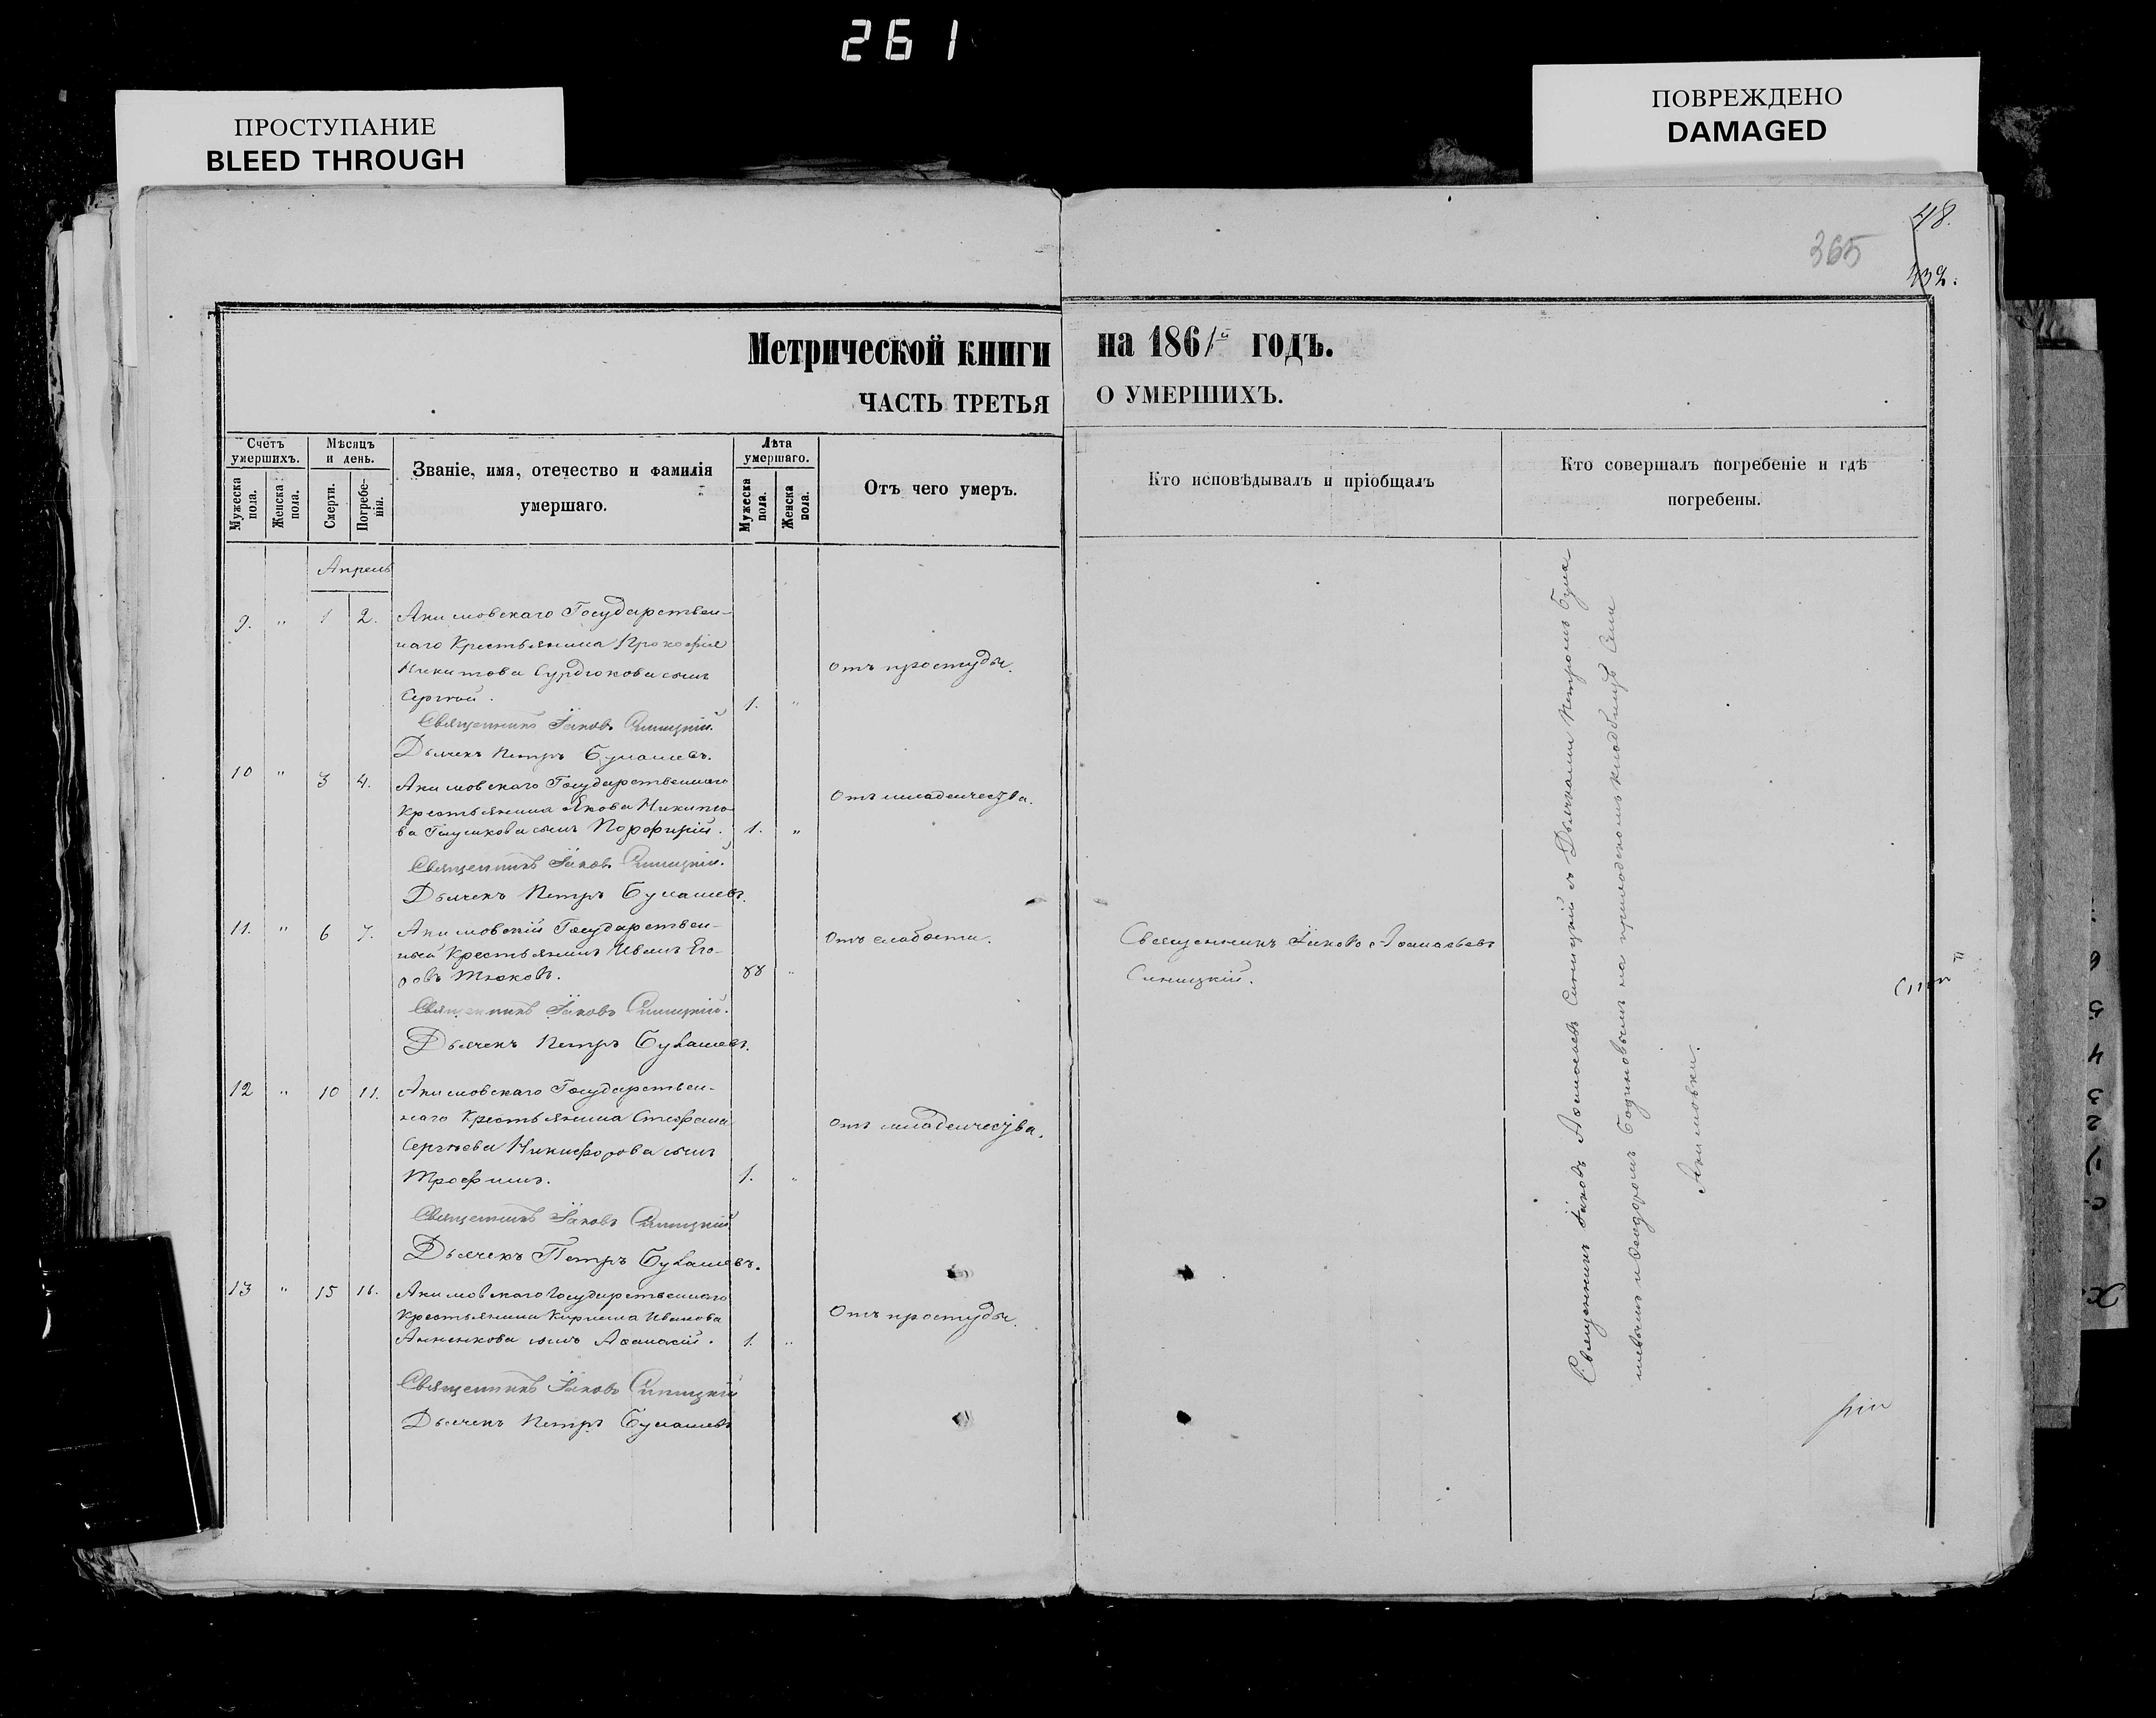 261
ПРОСТУПАНИЕ
BLEED THROUGH
ПОВРЕЖДЕНО
DAMAGED
48.
365
432.
Метрической книги на 1861й годъ.
ЧАСТЬ ТРЕТЬЯ О УМЕРШИХЪ.
Счетъ умершихъ.
Мужеска пола.
Женска пола.
Мѣсяцъ и день.
Смерти.
Погребенія.
Званіе, имя, отечество и фамилія
умершаго.
Лѣта умершаго.
Мужеска пола.
Женска пола.
Отъ чего умеръ.
Кто исповѣдывалъ и пріобщалъ
Кто совершалъ погребеніе и гдѣ
погребены.
Апрель
9. " 1 2. Акимовскаго Государствен-
наго Крестьянина Прокофія
Никитова Сурдюкова сынъ
Сергѣй. 1. "
Отъ простуды.
Священникъ Іаковъ Синицкій.
Дьячекъ Петръ Булашевъ.
10 " 3 4. Акимовскаго Государственнаго
Крестьянина Якова Никито-
ва Глушкова сынъ Порфирій. 1. "
Отъ младенчества.
Священникъ Іаковъ Синицкій.
Дьячекъ Петръ Булашевъ.
11. " 6 7. Акимовскій Государствен-
ный Крестьянинъ Иванъ Его-
ровъ Тюковъ. 88 "
Отъ слабости.
Священникъ Іаковъ Аѳанасьевъ
Синицкій.
Священникъ Іаковъ Синицкій.
Дьячекъ Петръ Булашевъ.
12 " 10 11. Акимовскаго Государствен-
наго Крестьянина Стефана
Сергѣева Никифорова сынъ
Трофимъ. 1. "
Отъ младенчества.
Священникъ Іаковъ Синицкій.
Дьячекъ Петръ Булашевъ.
13 " 15 16. Акимовскаго Государственнаго
Крестьянина Кирилла Иванова
Анненкова сынъ Аѳанасій. 1. "
Отъ простуды.
Священникъ Іаковъ Синицкій
Дьячекъ Петръ Булашевъ
Священникъ Іаковъ Аѳанасьевъ Синицкій съ Дьячками Петромъ Була
шевымъ и Ѳеодоромъ на приходскомъ кладбищѣ Села
Акимовки.